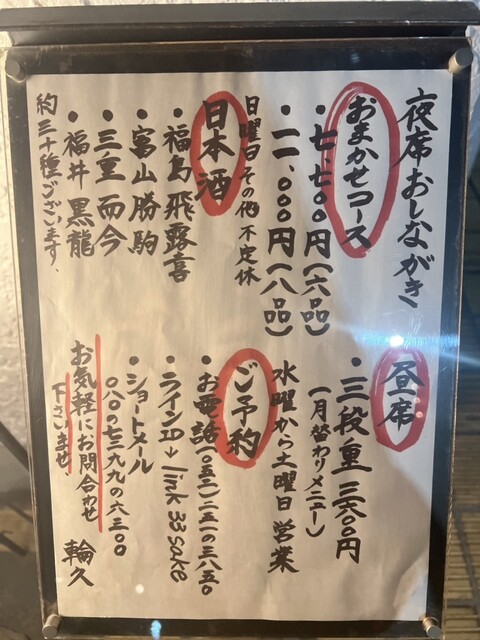 夜席おしながき
おまかせコース
・七、七〇〇円(六品)
・一一、〇〇〇円(八品)
日曜日その他不定休
日本酒
・福島 飛露喜
・富山 勝駒
・三重 而今
・福井 黒龍
約三十種ございます、
昼席
・三段重 三六〇〇円
(月替わりメニュー)
水曜から土曜日営業
ご予約
・お電話(〇五二)二五一〇三八五〇
・ラインID→link33sake
・ショートメール
〇八〇七三九九〇六三〇〇
お気軽にお問合わせ
下さいませ、
輪久